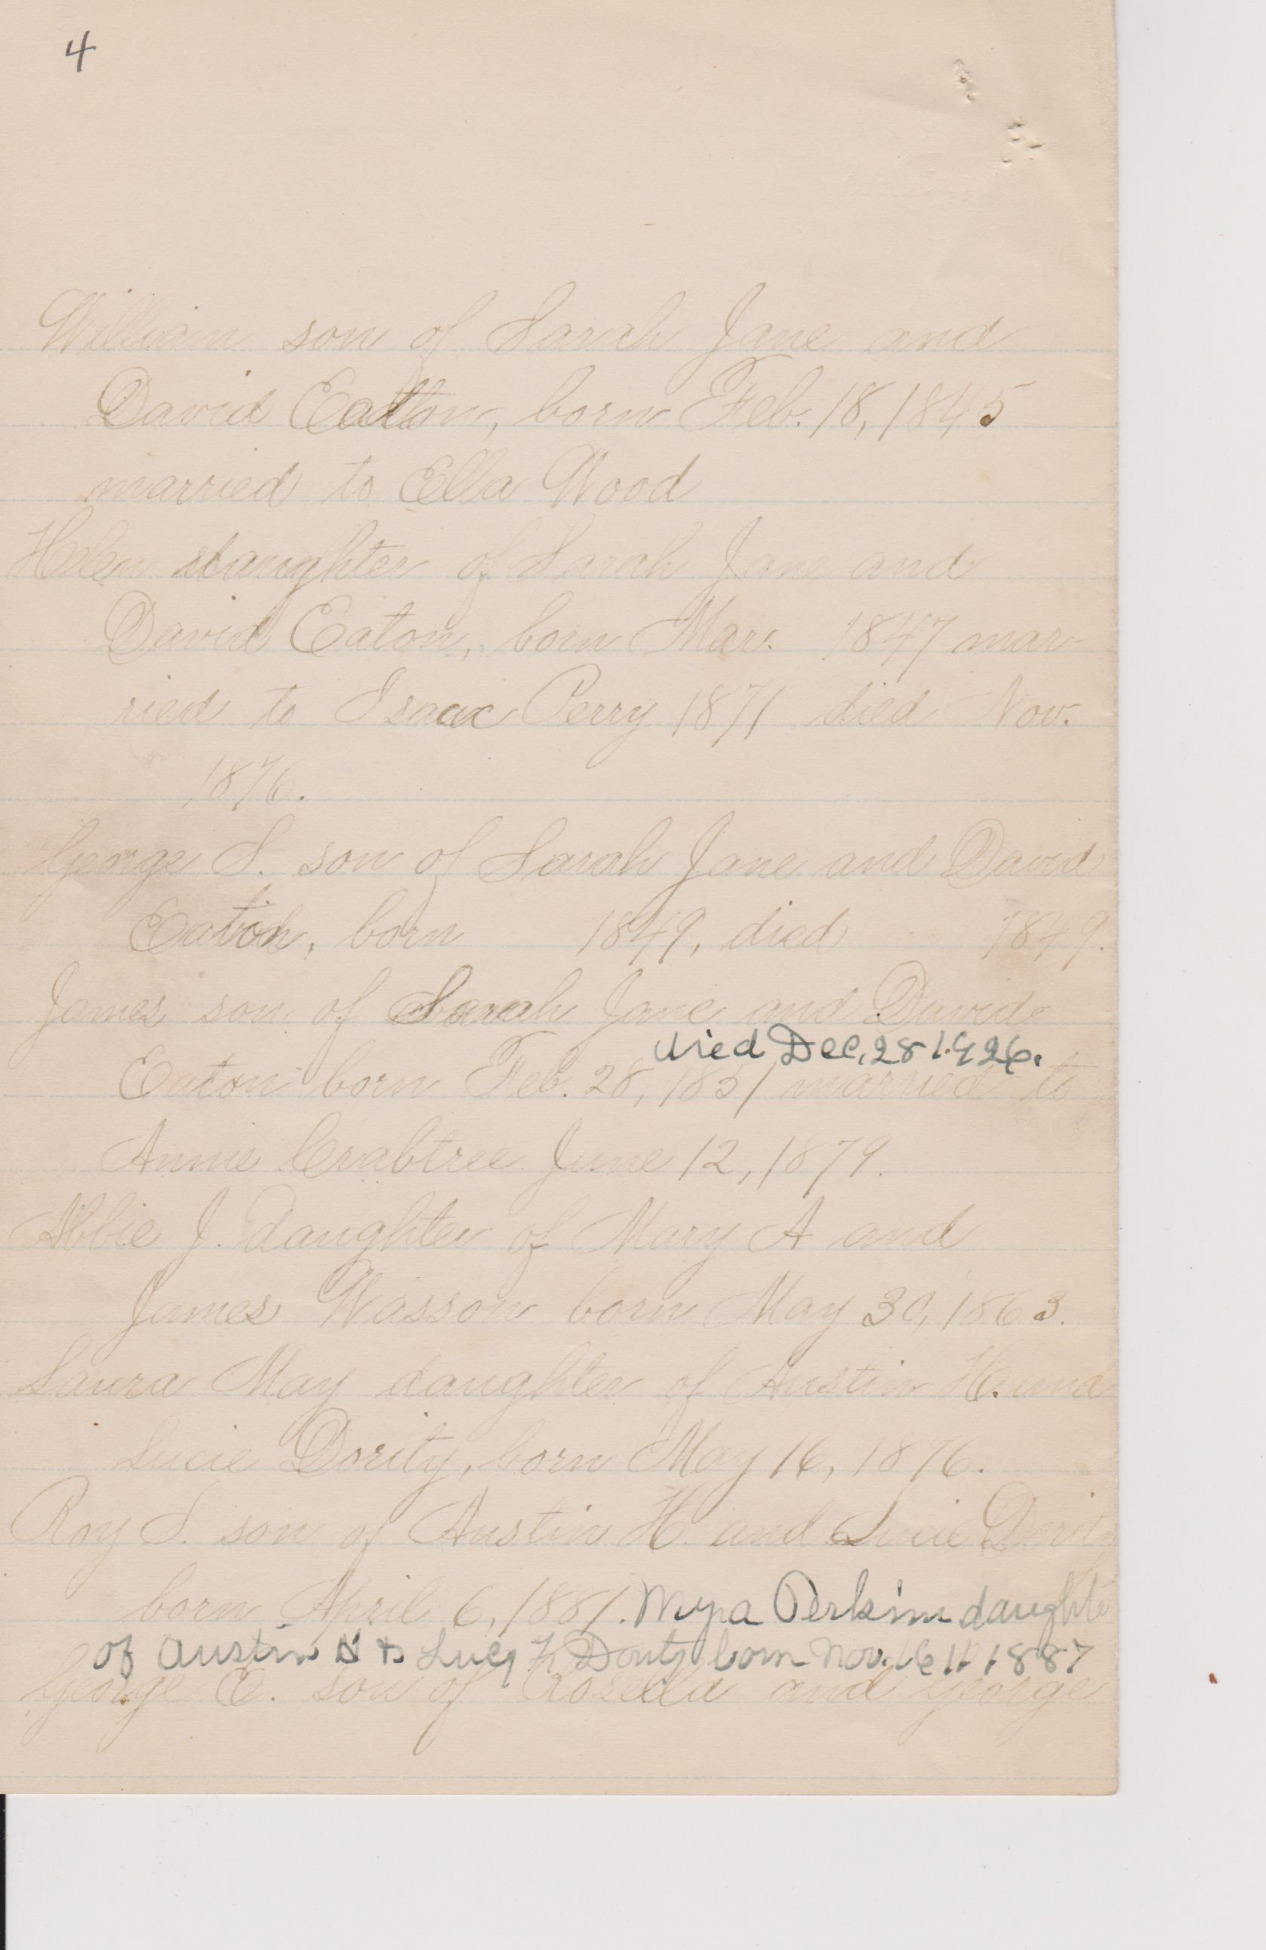 4
William son of Sarah Jane and
David Eaton, born Feb. 18, 1845
married to Ella Wood
Helen daughter of Sarah Jane and
David Eaton, born Mar. 1847 mar-
ried to Isaac Perry 1871 died Nov.
1876.
George S. son of Sarah Jane and David
Eaton, born 1849, died 1849.
James son of Sarah Jane and David
died Dec. 28 1926.
Eaton born Feb. 28, 1851 married to
Annie Crabtree June 12, 1879.
Abbie J. daughter of Mary A and
James Wasson born May 30, 1863.
Laura May daughter of Austin H. and
Lucie Dority, born May 16, 1876.
Roy S. son of Austin H. and Lucie Dority
born April 6, 1881. Myra Perkins daughte
of Austin H & Lucy Dority born Nov. 1887
George E. son of Rosella and George